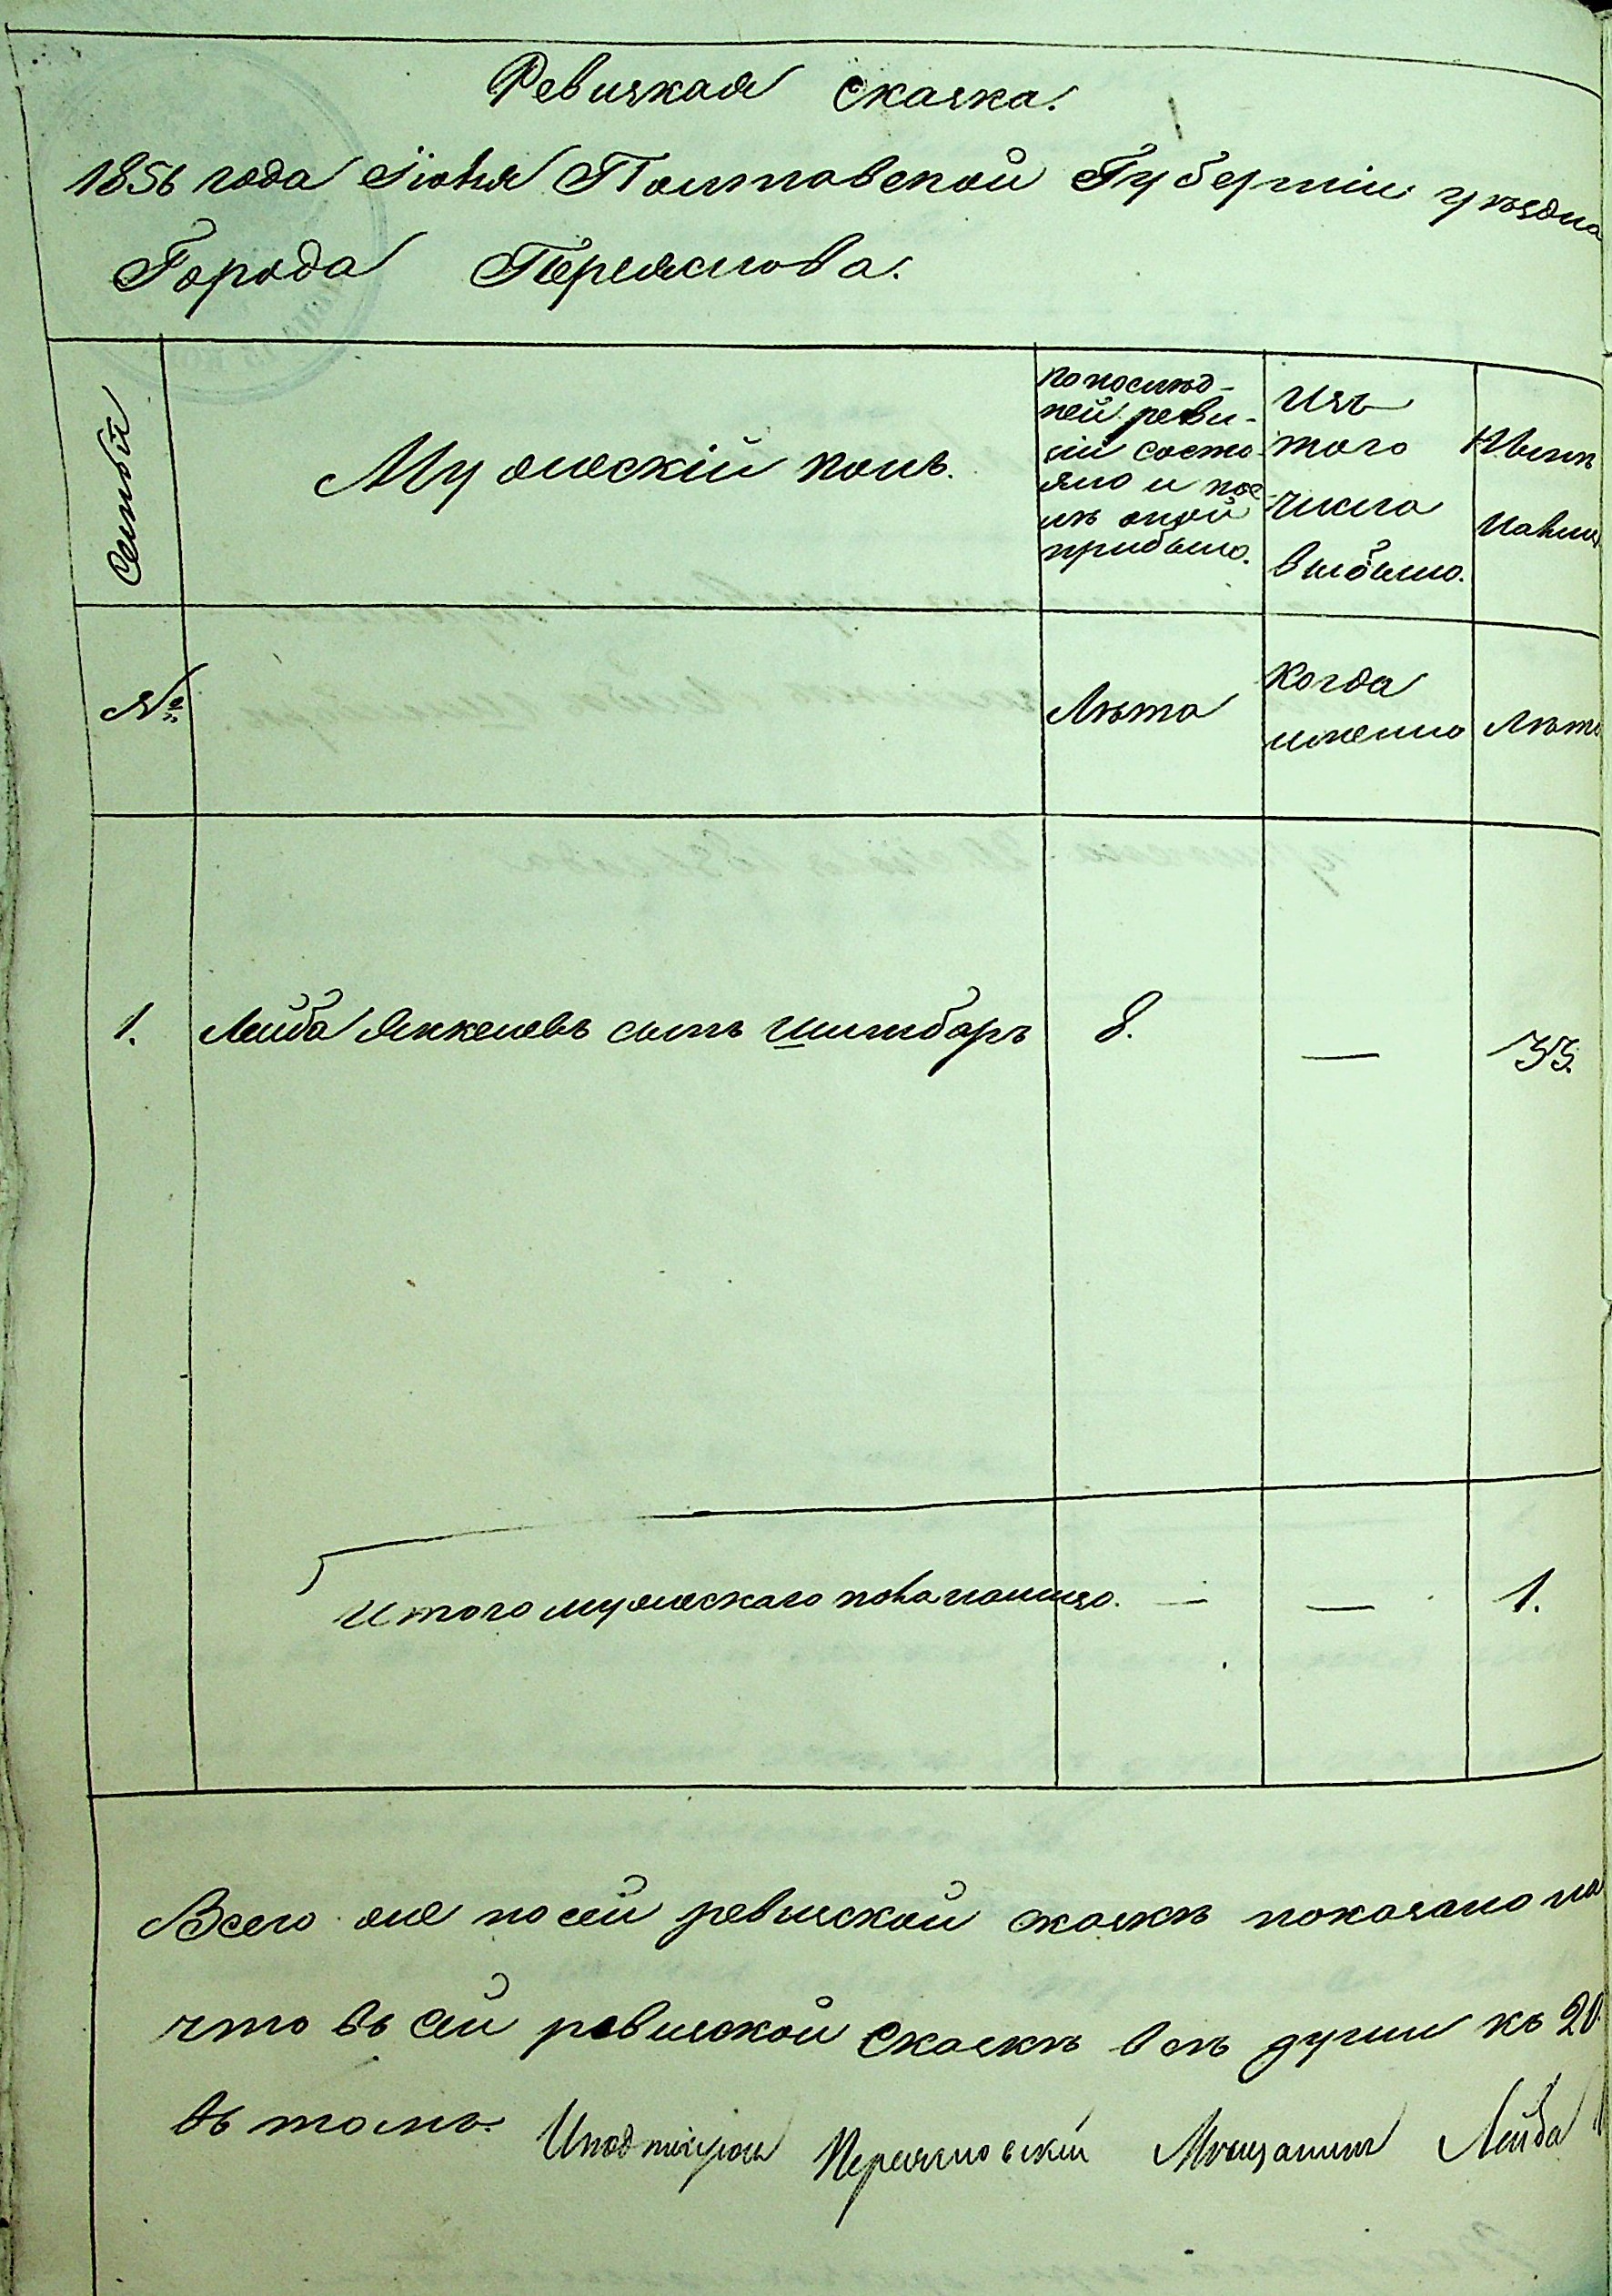 Ревизкая сказка.
1856 года Іюня Полтавской Губерніи уѣздна
Города Переяслова.
Семьи
Мужескій полъ.
По послѣд-
ней реви-
зіи состо
яло и пос-
лѣ оной
прибыло.
Изъ
того
числа
выбыло.
Нынѣ
налиц
№
Лѣта
Когда
именно
Лѣта
1. Лейба Янкелевъ сынъ 8. — 35.
Итого мужескаго пола налицо. — — 1.
Всего же по сей ревизской сказкѣ показано на
что въ сей ревизской сказкѣ всѣ души къ 20
въ томъ.
Переясловскій Мещанинъ Лейба